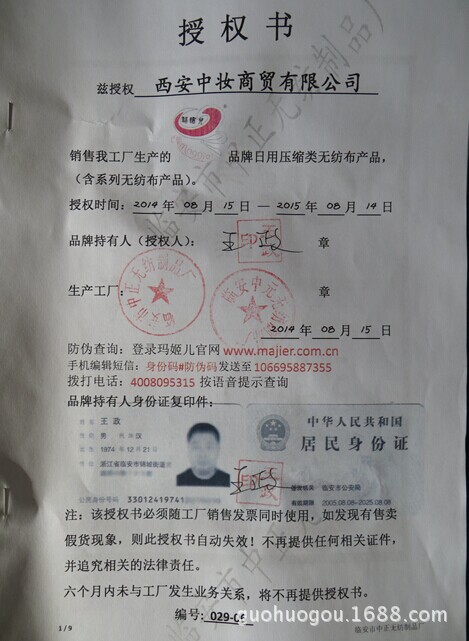 授权书
兹授权 西安中妆商贸有限公司
销售我工厂生产的 品牌日用压缩类无纺布产品，
（含系列无纺布产品）。
授权时间：2014 年 08 月 15 日 — 2015 年 08 月 14 日
品牌持有人（授权人）： 王政 章
生产工厂： 章
临安市中正无纺制品厂
2014 年 08 月 15 日
防伪查询：登录玛姬儿官网 www.majier.com.cn
手机编辑短信：身份码#防伪码发送至 106695887355
拨打电话：4008095315 按语音提示查询
品牌持有人身份证复印件：
姓名 王政
性别 男 民族 汉
出生 1974 年 12 月 21 日
住址 浙江省临安市锦城街道
公民身份号码 33012419741
中华人民共和国
居民身份证
签发机关 临安市公安局
有效期限 2005.08.08-2025.08.08
注：该授权书必须随工厂销售发票同时使用，如发现有售卖
假货现象，则此授权书自动失效！不再提供任何相关证件，
并追究相关的法律责任。
六个月内未与工厂发生业务关系，将不再提供授权书。
编号：029-0
guohuogou.1688.com
1 / 9
临安市中正无纺制品厂